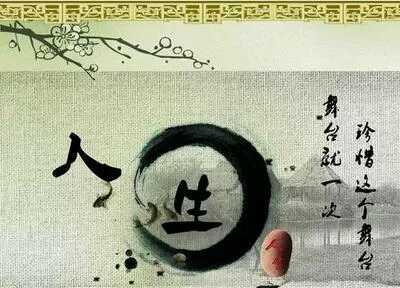 人生
舞台就一次
珍惜这个舞台